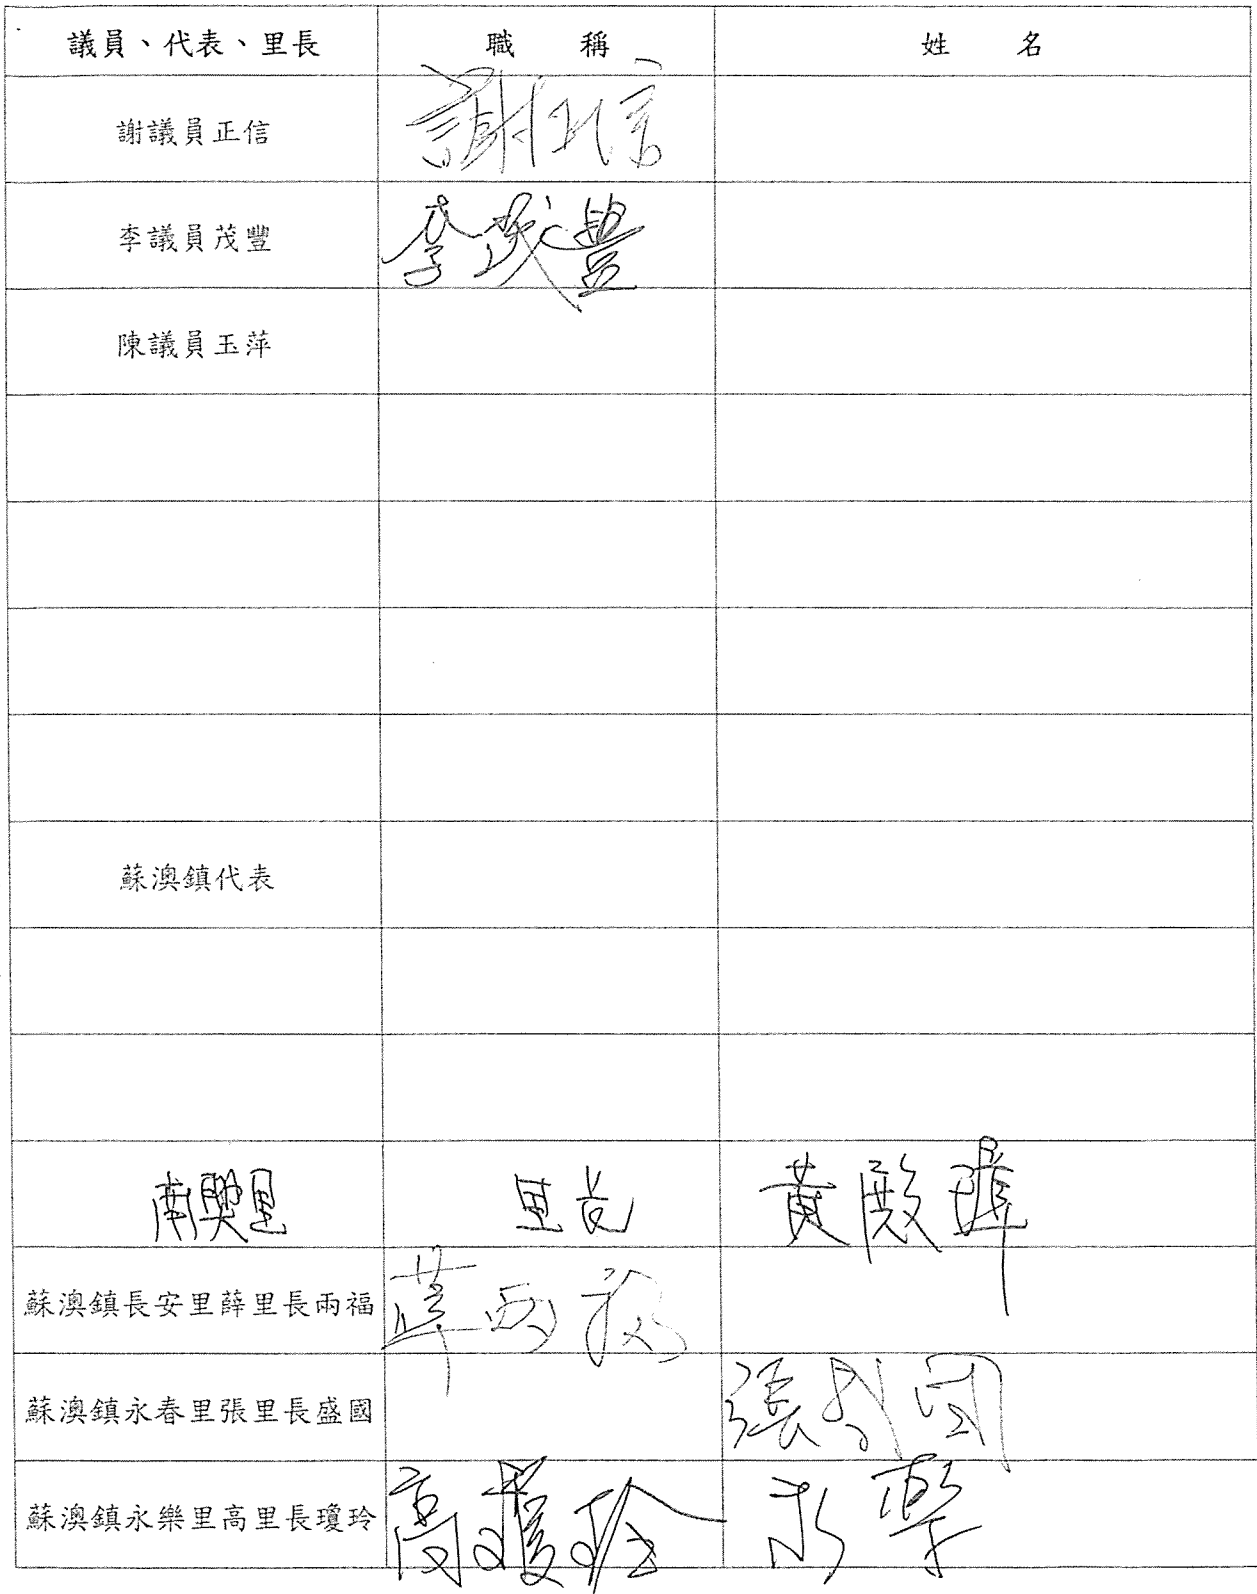 議員、代表、里長 職稱 姓名
謝議員正信 謝正信
李議員茂豐 李茂豐
陳議員玉萍
蘇澳鎮代表
南興里 里長 黃殿
蘇澳鎮長安里薛里長兩福 薛兩福
蘇澳鎮永春里張里長盛國 張盛國
蘇澳鎮永樂里高里長瓊玲 高瓊玲 永樂